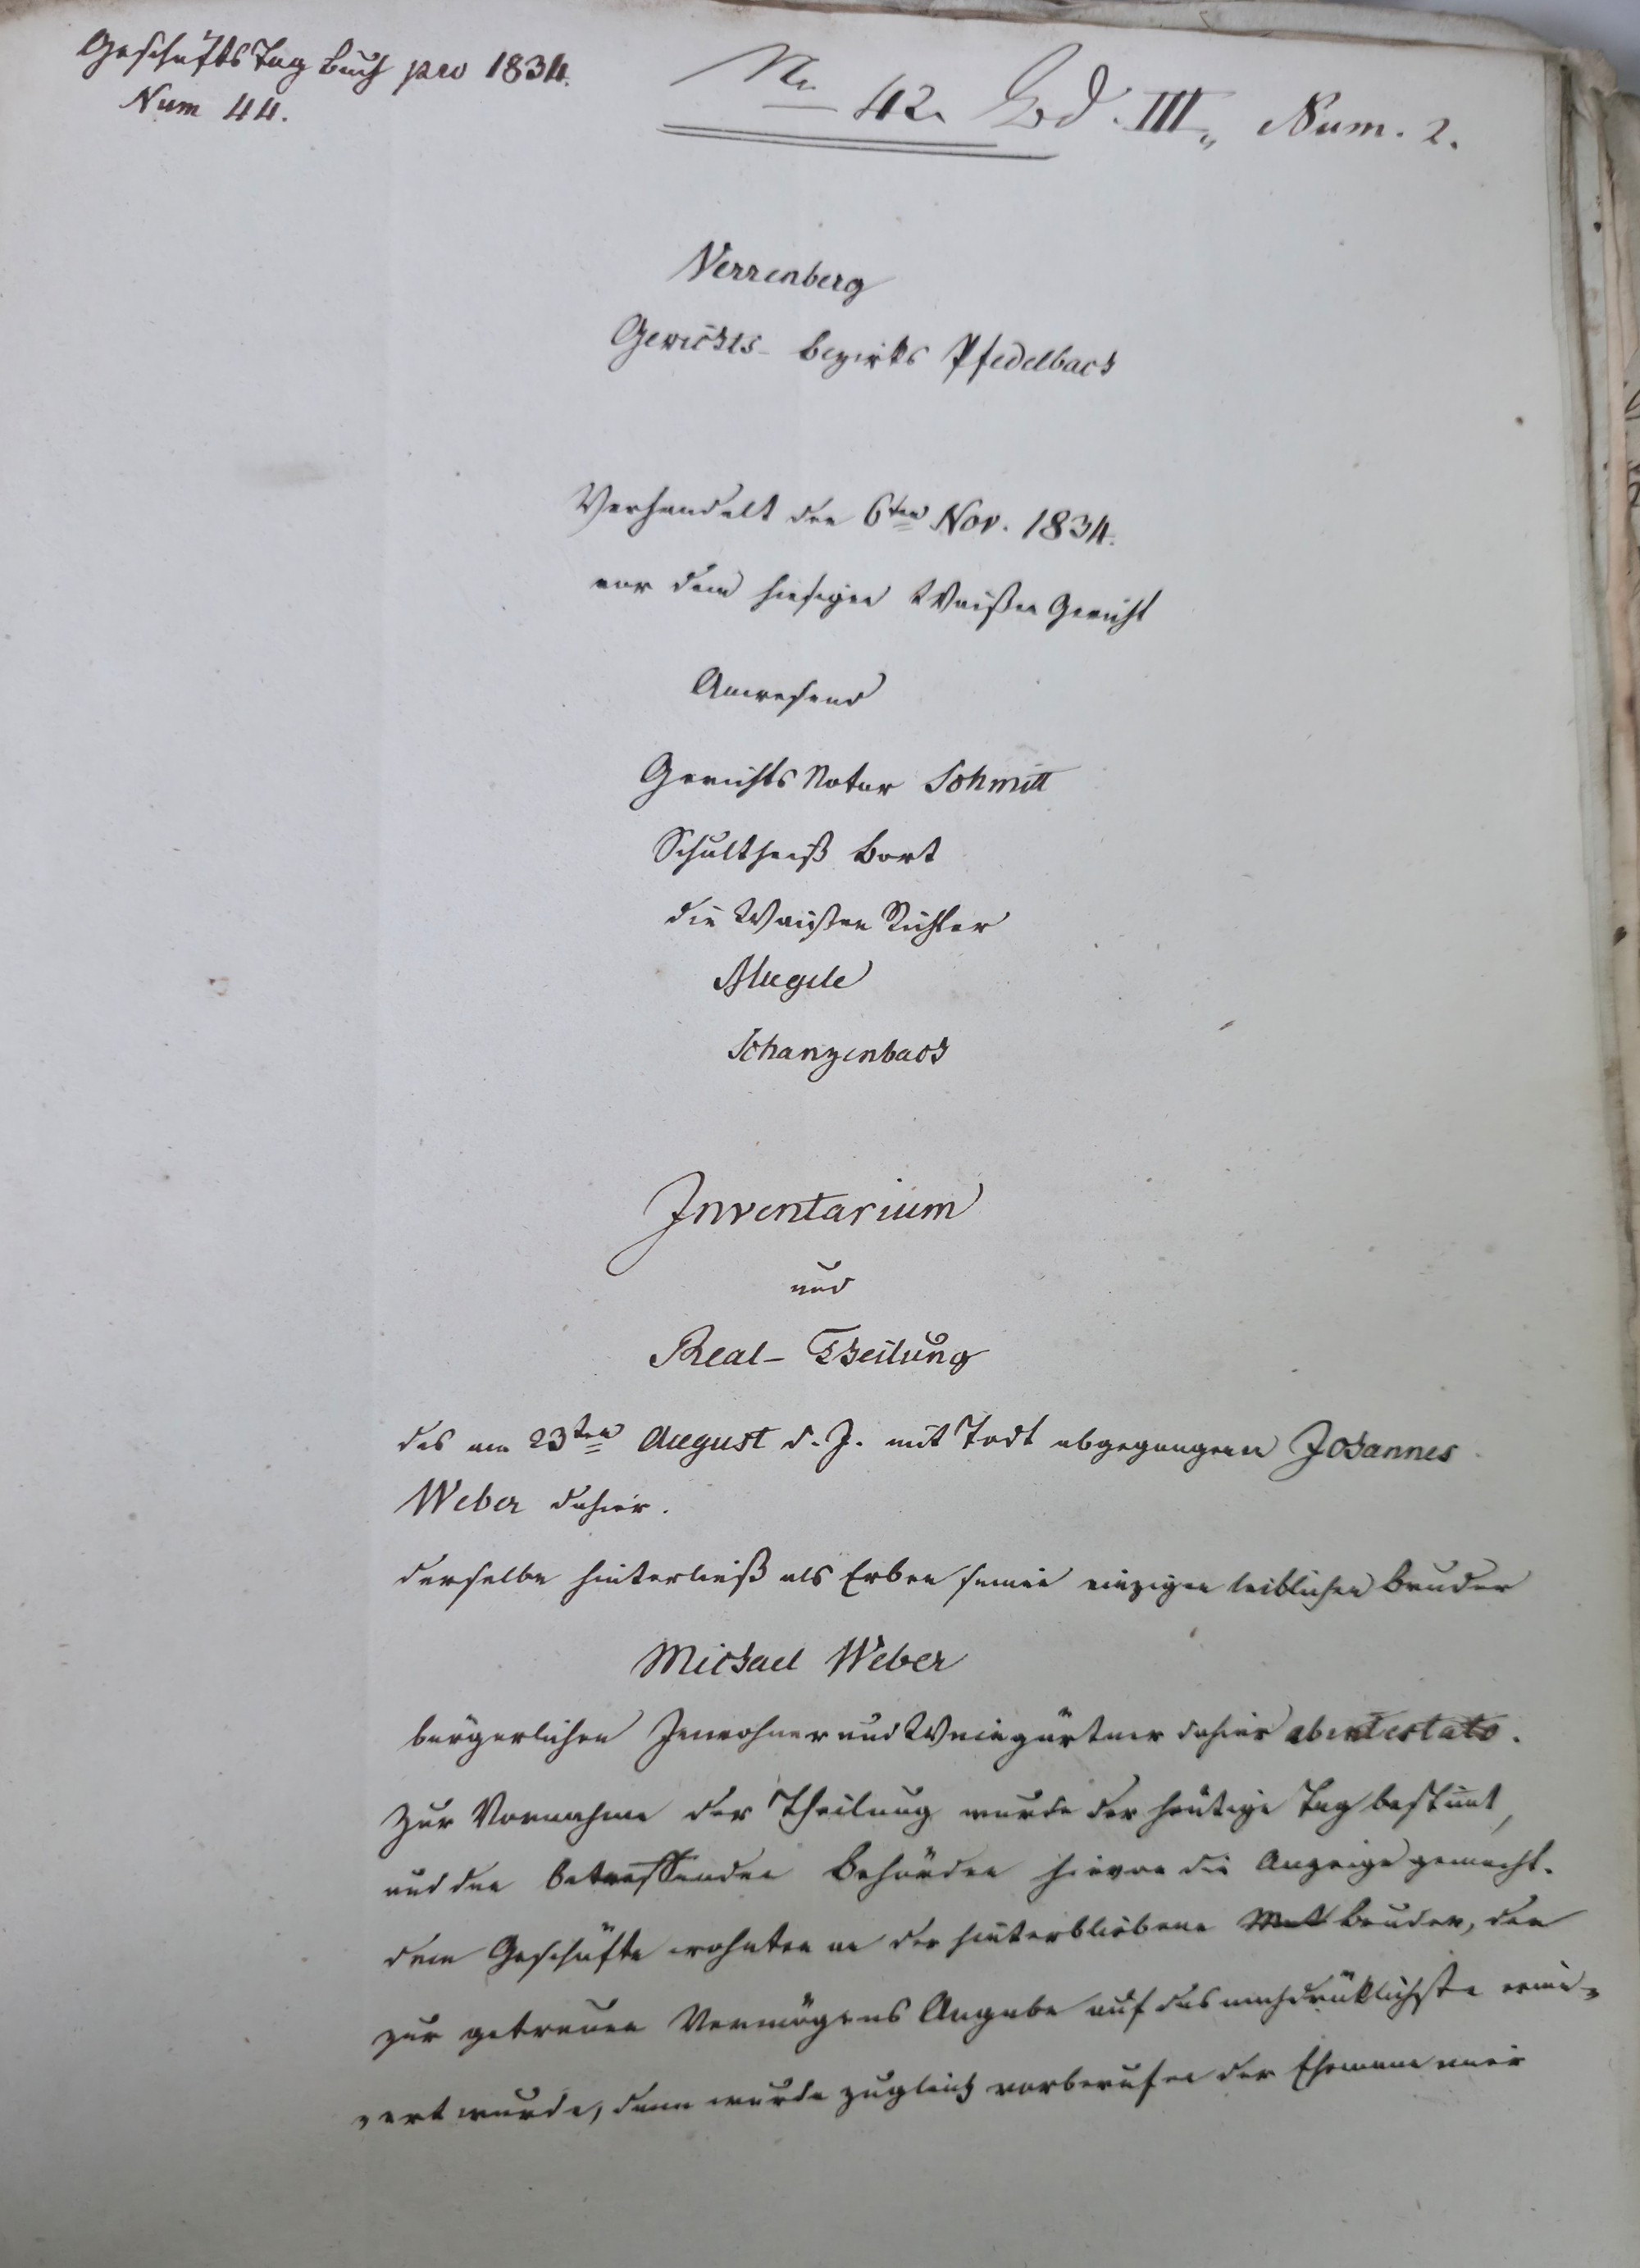 GeschäftsTagBuch pro 1834.
Num 44.
No 42. Bd. III, Num. 2.
Verrenberg
Gerichts-bezirks Pfedelbach
Verhandelt den 6ten Nov. 1834.
vor dem hiesigen Waißen Gericht
Anwesend
Gerichts Notar Schmitt
Schultheiß Bort
die Waißen Richter
Mugele
Schanzenbach
Inventarium
und
Real-Theilung
des am 23ten August d. J. mit Todt abgegangenen Johannes
Weber dahier.
derselbe hinterließ als Erben seinen einzigen leiblichen bruder
Michael Weber
bürgerlichen Innwohner und Weingärtner dahier abintestato.
Zur Vornahme der Theilung wurde der heutige Tag bestimt,
und den betreffenden Behörden hievon die Anzeige gemacht.
dem Geschäfte wohnten an der hinterbliebene bruder, der
zur getreuen Vermögens Angabe auf das nachdrüklichste
wurde, dann wurde zugleich vorberufen der Ehemann